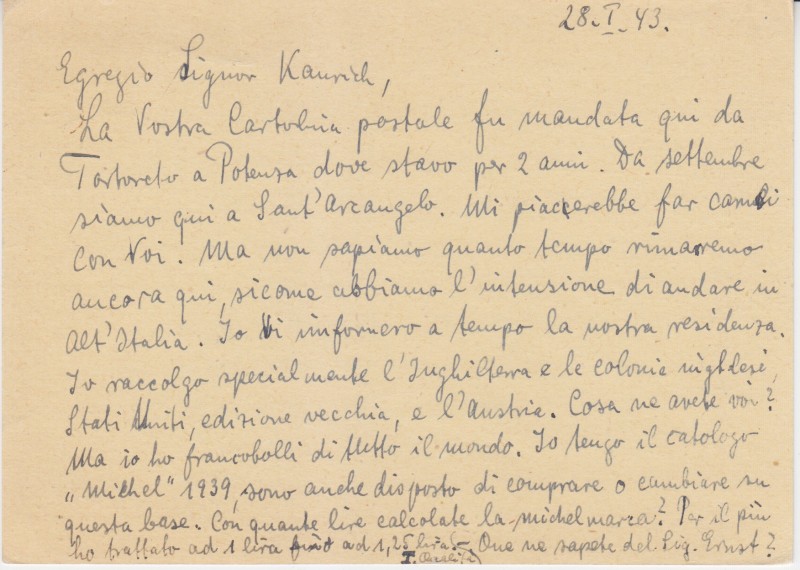 28.I.43.
Egregio Signor Kanrich,
La Vostra Cartolina postale fu mandata qui da
Tortoreto a Potenza dove stavo per 2 anni. Da settembre
siamo qui a Sant'Arcangelo. Mi piaccerebbe far cambi
con Voi. Ma non sapiamo quanto tempo rimarremo
ancora qui, sicome abbiamo l'intensione di andare in
Alt'Italia. Io Vi infornero a tempo la nostra residenza.
Io raccolgo specialmente l'Inghilterra e le colonie inglesi,
Stati Uniti, edizione vecchia, e l'Austria. Cosa ne avete voi?
Ma io ho francobolli di tutto il mondo. Io tengo il catologo
„Michel" 1939, sono anche disposto di comprare o cambiare su
questa base. Con quante lire calcolate la michelmarza? Per il più
ho trattato ad 1 lira fino ad 1,25 lira. – Que ne sapete del Sig. Ernst?
I.